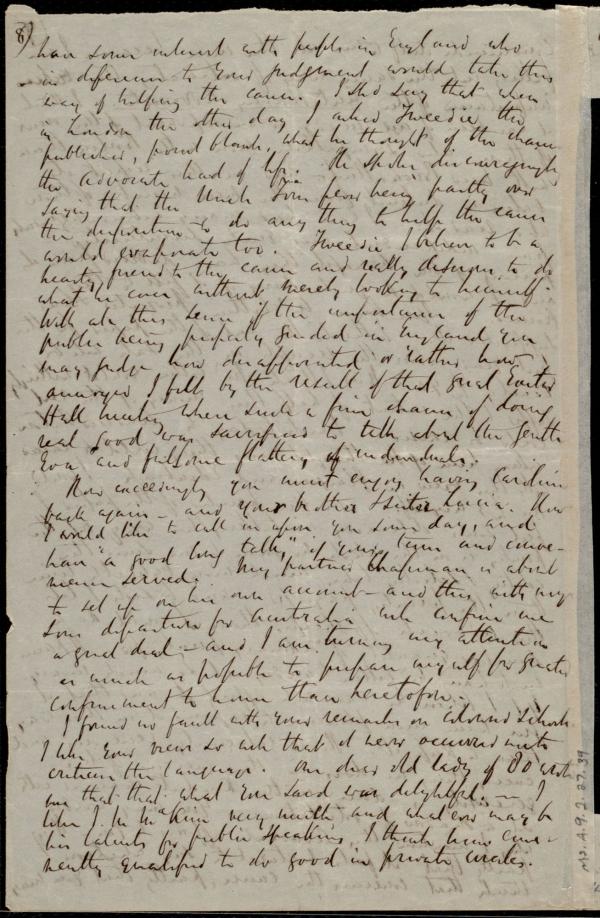 8)
have some interest with people in England who
in deference to your judgment would take this
way of helping the cause. I shd say that when
in London the other day I asked Tweedie the
publisher, point blank, what he thought of the chance
the Advocate had of life. He spoke discouragingly
saying that the Uncle Tom fever being partly over
the disposition to do any thing to help the cause
would evaporate too. Tweedie I believe to be a
hearty friend to the cause and really desirous to do
what he can without merely looking to himself.
With all this sense of the importance of the
public being properly guided in England, you
may judge how disappointed or rather how
annoyed I felt by the result of that great Exeter
Hall meeting when such a fine chance of doing
real good was sacrificed to talk about the gentle
Eva and fulsome flattery of individuals.
How exceedingly you must enjoy having Caroline
back again - and your brother & sister Lucia. How
I would like to call in upon you some day, and
have "a good long talk," if your time and conve-
nience served. My partner Chapman is about
to set up on his own account - and this with my
sons departure for Australia will confine me
a good deal - and I am turning my attention
as much as possible to prepare myself for greater
confinement to home than heretofore.
I found no fault with your remarks on colored schools
I like your views so well that it never occurred to me to
criticise the language. Our dear old lady of 80 wrote
me that that what you said was delightful. — I
like J. M. McKim very much and whatever may be
his talents for public speaking I think him emi-
nently qualified to do good in private circles.
Ms. A.9.2.27.39